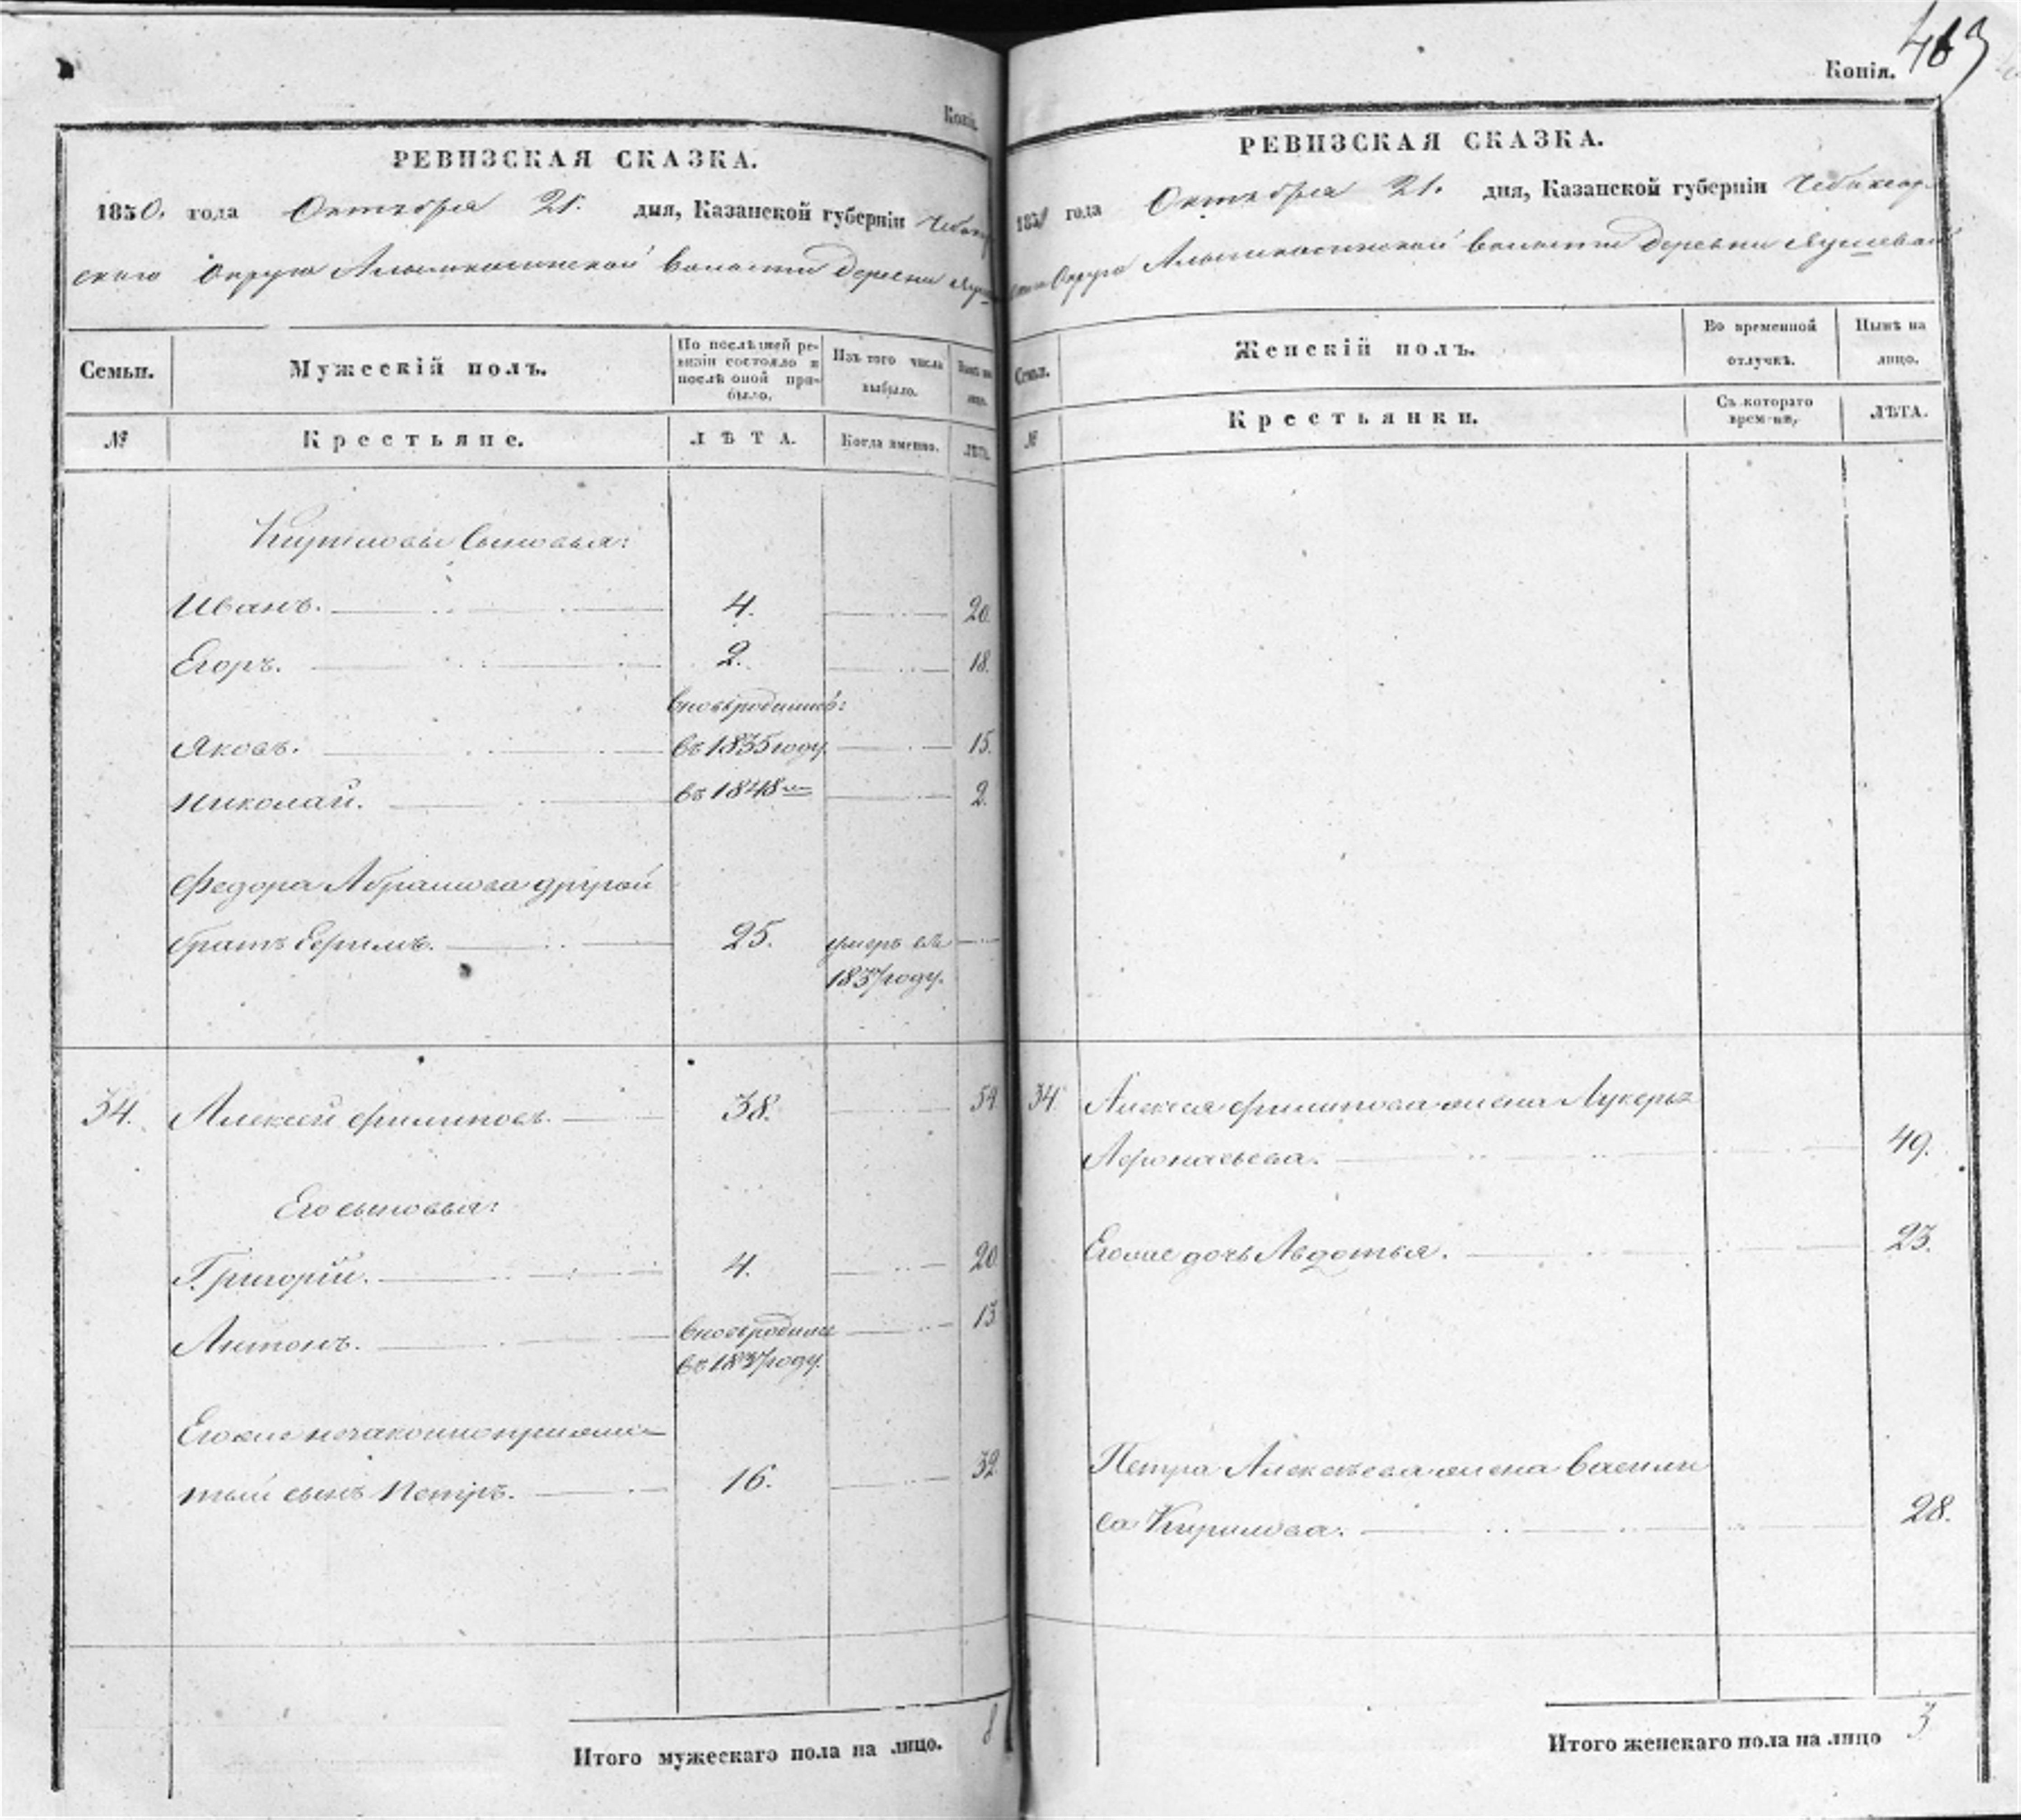 Копія.
РЕВИЗСКАЯ СКАЗКА.
1850. года Октября 21. дня, Казанской губерніи Чебокар
скаго Округа Алымкасинской волости деревни
Семьи. Мужескій полъ. По послѣдней ре-
визіи состояло и
послѣ оной при-
было. Изъ того числа
выбыло. Нынѣ на
лицо.
№ Крестьяне. ЛѢТА. Когда именно. ЛѢТА.
Кириловы сыновья:
Иванъ. 4. 20.
Егоръ. 2. 18.
вновь родились:
Яковъ. въ 1835 году. 15.
Николай. въ 1848 2.
Федора Абрамова другой
братъ Ефимъ. 25. умеръ въ
1837 году.
34. Алексей Филиповъ. 38. 54
Его сыновья:
Григорій. 4. 20.
Антонъ. вновь родился 13
въ 1837 году.
Его же незаконно прижи
тый сынъ Петръ. 16. 32.
Итого мужескаго пола на лицо. 8
Копія. 463
РЕВИЗСКАЯ СКАЗКА.
1850 года Октября 21. дня, Казанской губерніи Чебокар
скаго Округа Алымкасинской волости деревни Яушевой
Семьи. Женскій полъ. Во временной
отлучкѣ. Нынѣ на
лицо.
№ Крестьянки. Съ котораго
времени. ЛѢТА.
34. Алексея Филипова жена Лукерья
Афонасьева. 49.
Его же дочь Авдотья. 23.
Петра Алексѣева жена Васили
са Кирилова. 28.
Итого женскаго пола на лицо 3